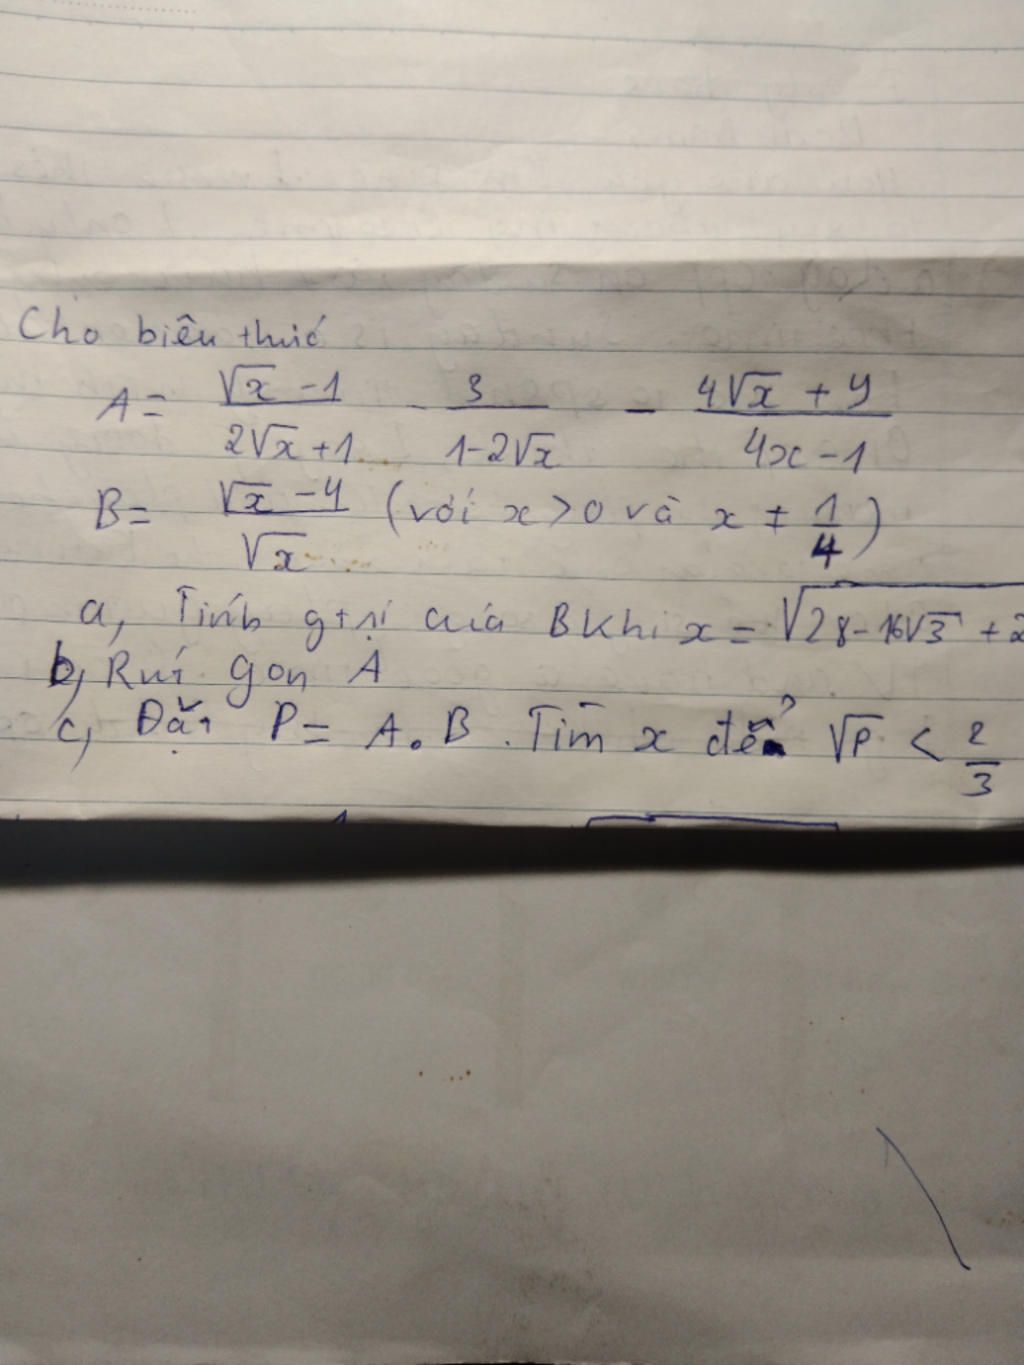 Cho biêu thức
A = \frac{\sqrt{x} - 1}{2\sqrt{x} + 1} - \frac{3}{1 - 2\sqrt{x}} - \frac{4\sqrt{x} + 4}{4x - 1}
B = \frac{\sqrt{x} - 4}{\sqrt{x}} (với x > 0 và x ≠ \frac{1}{4})
a, Tính gtrị của B khi x = \sqrt{28 - 16\sqrt{3}} + 2
b, Rút gọn A
c, Đặt P = A . B . Tìm x để \sqrt{P} < \frac{2}{3}